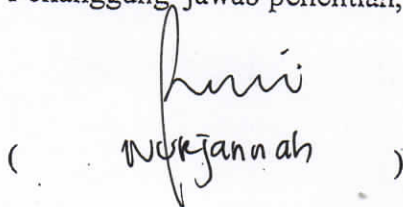 Penanggung jawab penelitian,
( Nurjannah )